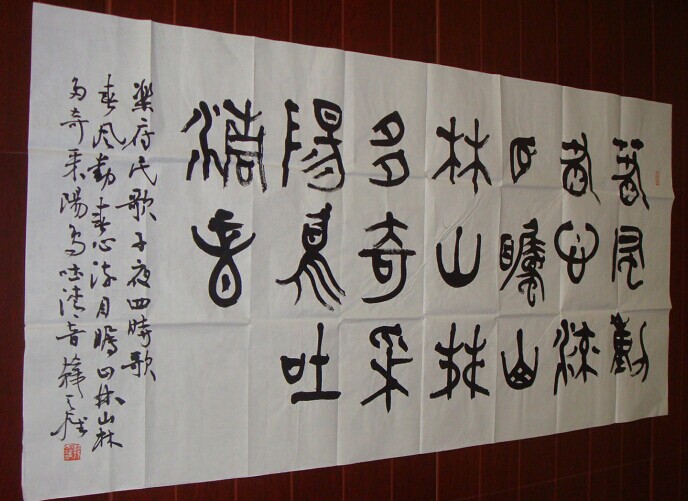 春風動
春心流
目矚山
林山林
多奇采
陽鳥吐
清音
樂府民歌子夜四時歌
春风動春心流目矚山林山林
多奇采陽鸟吐清音